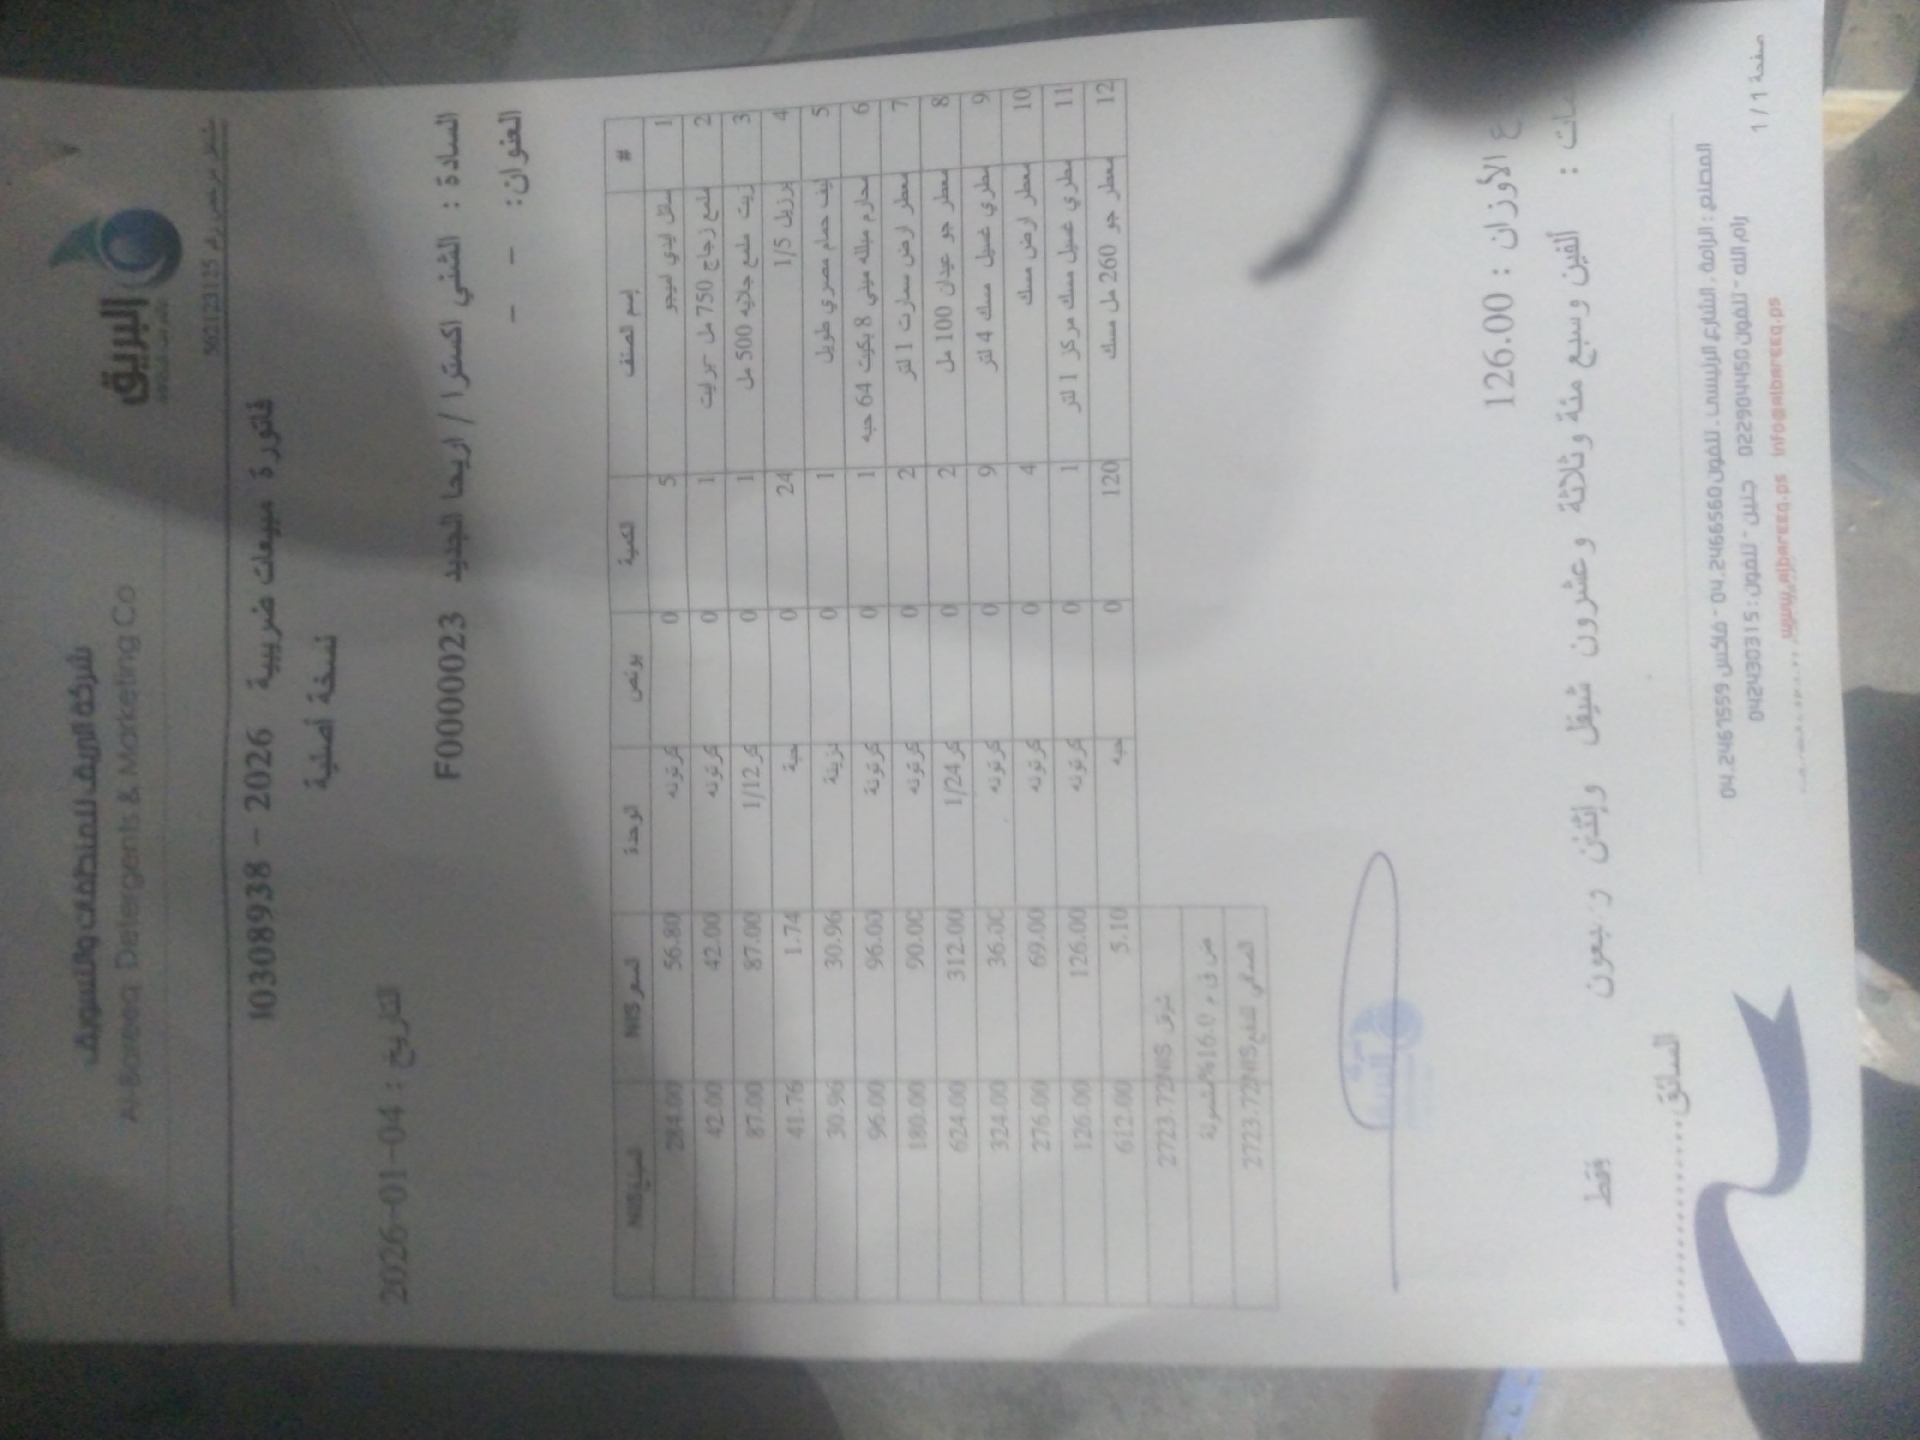 شركة البريق للمنظفات والتسويق
Al-Bareeq Detergents & Marketing Co
البريق
مشتغل مرخص رقم 562123125
فاتورة مبيعات ضريبية 2026 - 10308938
نسخة أصلية
التاريخ : 2026-01-04
السادة : الشني اكسترا / اريحا الجديد F0000023
العنوان: - -
# إسم الصنف الكمية بونص الوحدة السعر NIS المبلغ NIS
1 سائل ايدي 5 0 كرتونه 56.80 284.00
2 ملمع زجاج 750 مل 1 0 كرتونه 42.00 42.00
3 زيت ملمع جلاية 500 مل 1 0 كر1/12 87.00 87.00
4 برزيل 1/5 24 0 حبة 1.74 41.76
5 ليف حمام مصري طويل 1 0 30.96 30.96
6 محارم مبلله ميني 8 بكيت 64 حبه 1 0 كرتونة 96.00 96.00
7 معطر ارض سمارت 1 لتر 2 0 كرتونه 90.00 180.00
8 معطر جو عيدان 100 مل 2 0 كر1/24 312.00 624.00
9 مطري غسيل مسك 4 لتر 9 0 كرتونه 36.00 324.00
10 معطر ارض مسك 4 0 كرتونه 69.00 276.00
11 مطري غسيل مسك مركز 1 لتر 1 0 كرتونه 126.00 126.00
12 معطر جو 260 مل مسك 120 0 حبه 5.10 612.00
2723.72
ض ق م 16.0% مشمولة
الصافي للدفع NIS 2723.72
ع الأوزان : 126.00
ألفين وسبع مئة وثلاثة وعشرون شيقل وإثنن و بعون فقط
السائق
المصنع : الرامة , الشارع الرئيسي . تلفون 04.2466560 - فاكس 04.2467559
رام الله - تلفون 022904450 جنين - تلفون : 042430315
www.albareeq.ps info@albareeq.ps
صفحة 1 / 1